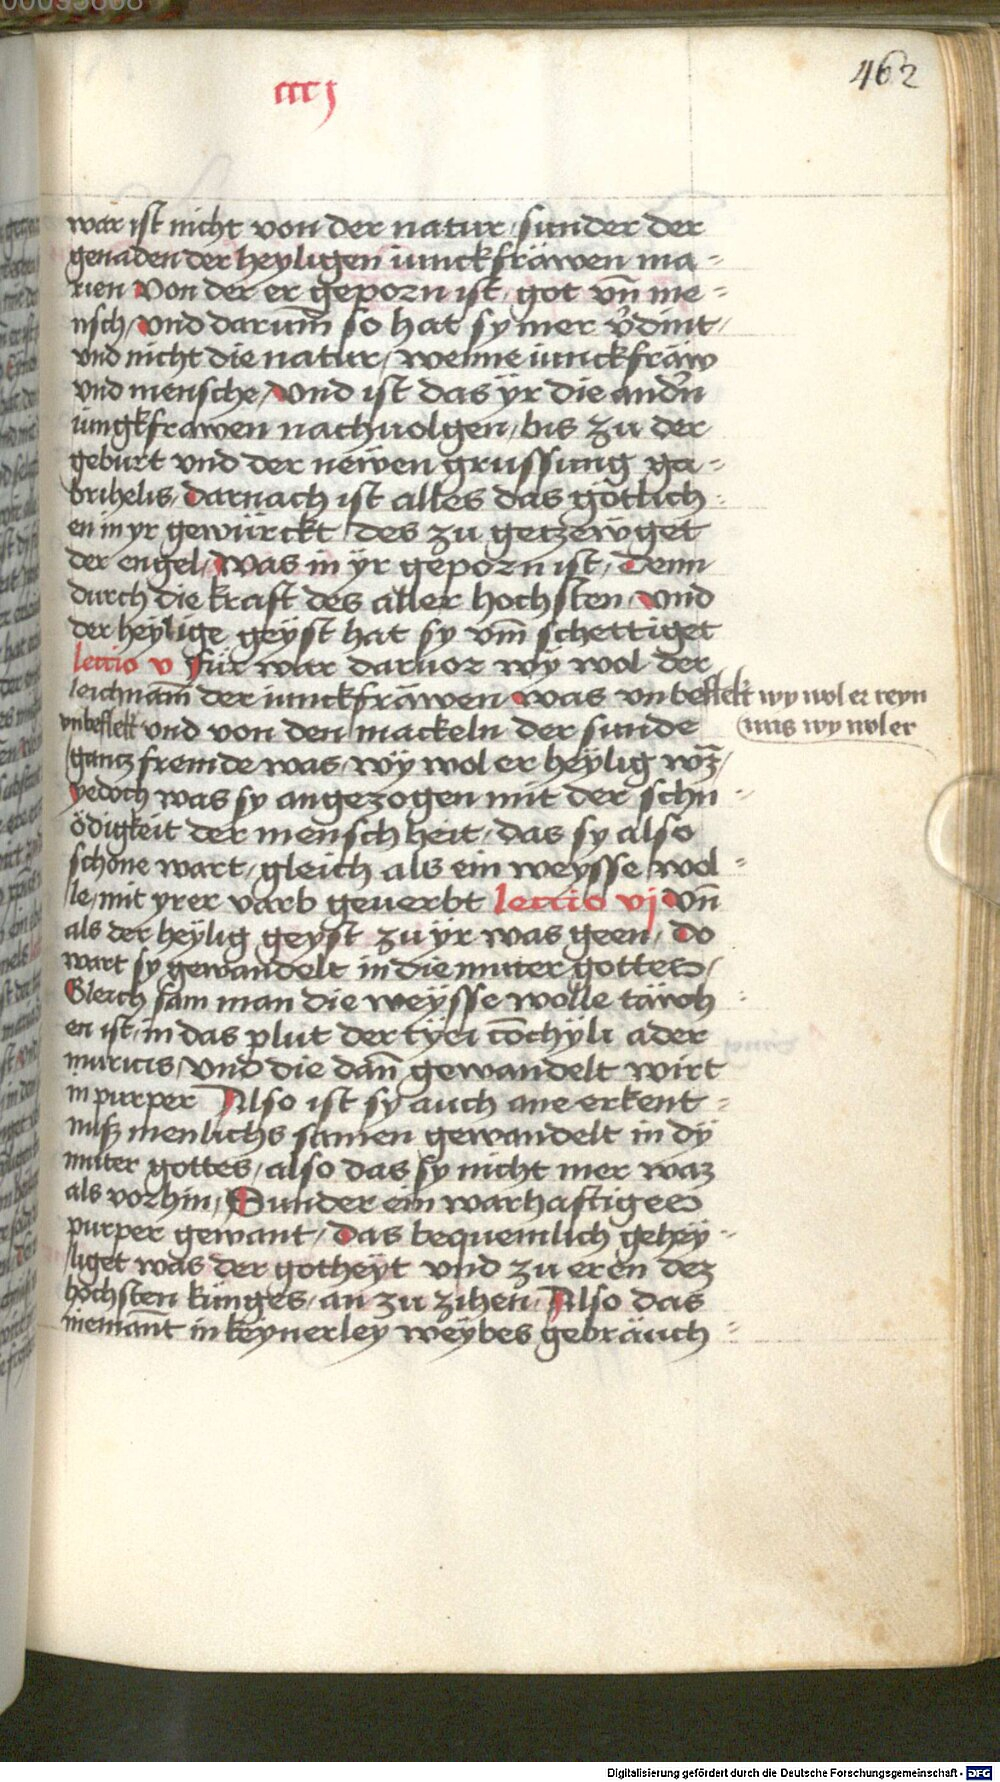 462
ccccj
war ist nicht von der natur / sunder der
genaden der heyligen iunckfräwen ma=
rien Von der er geporn ist / got vn̄ me=
nsch / Vnd darum̄ so hat sy mer v̓dint /
vnd nicht die natur / wenne iunckfräw
vnd mensche / Vnd ist das ÿr die and̓n
iungkfrawen nachuolgen / bis zu der
geburt vnd der newen grussung ga=
brihelis / Darnach ist alles das götlich=
en in yr gewürckt / des zu getzewget
der engel / Was in ÿr geporn ist / Denn
durch die kraft des aller hochsten / Vnd
der heylige geÿst hat sy vm̄ schettiget
lectio v Für war daruor wÿ wol der
leichnam̄ der iunckfräwen was vnbeflekt wy wol er reyn
was wy wol er
vnbeflekt vnd von den mackeln der sunde
gantz fremde was / wÿ wol er heÿlig wz /
yedoch was sy angezogen mit der schn=
ödigkeit der mensch heit / das sy also
schone wart / gleich als ein weysse wol=
le / mit yrer varb geuerbt lectio vj Vn̄
als der heÿlig geyst zu ÿr was geen / Do
wart sy gewandelt in die muter gottes /
Gleich sam man die weÿsse wolle täwch=
en ist / in das plut der tÿer co̅chÿli ader
muricis / Vnd die dan̄ gewandelt wirt
in purper Also ist sy auch ane erkent=
nisz menlichs samen gewandelt in dÿ
muter gottes / also das sy nicht mer waz
als vorhin / Sunder ein warhaftiges
purper gewant / Das bequemlich gehey=
liget was der gotheÿt vnd zu eren dez
hochsten künges / an zu zihen / Also das
nieman̄t in keynerley weÿbes gebräuch=
Digitalisierung gefördert durch die Deutsche Forschungsgemeinschaft - DFG